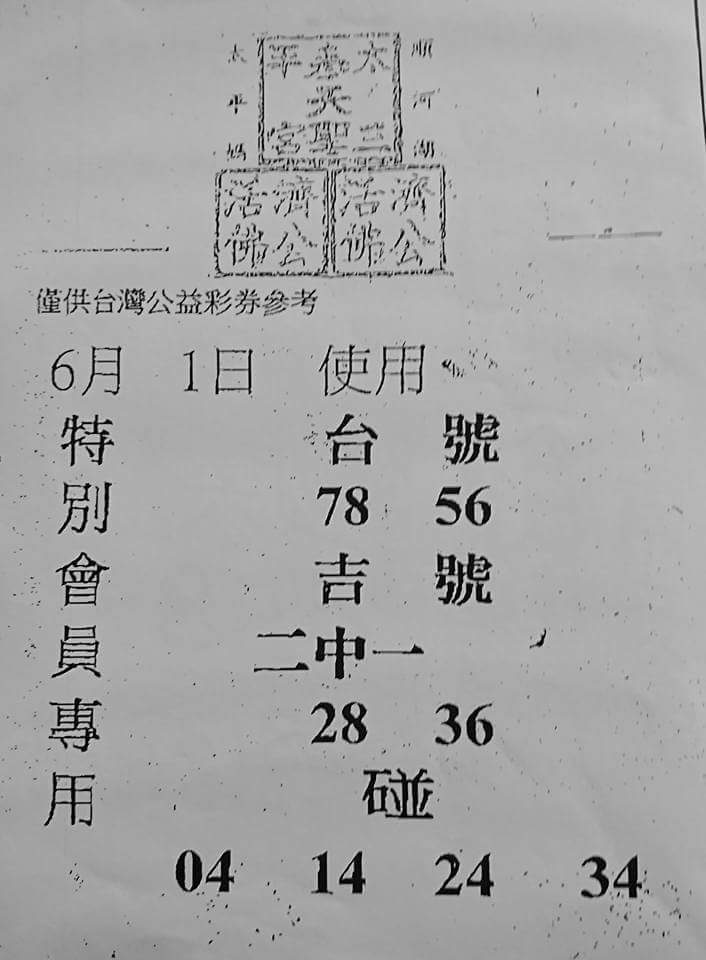 順河湖
太平媽
太 平
天
三聖宮
濟公活佛
濟公活佛
僅供台灣公益彩券參考
6月 1日 使用
特別會員專用
台 號
78 56
吉 號
二中一
28 36
碰
04 14 24 34